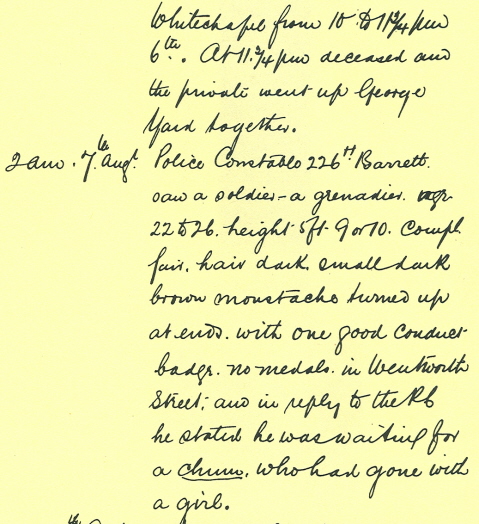 Whitechapel from 10 to 11¾ pm
6th. At 11.¾ pm deceased and
the private went up George
Yard together.
2 am. 7th Augt. Police Constable 226H Barrett.
saw a soldier - a grenadier. age
22 to 26. height 5ft 9 or 10. compl
fair. hair dark. small dark
brown moustache turned up
at ends. with one good conduct
badge. no medals. in Wentworth
Street; and in reply to the PC
he stated he was waiting for
a chum. who had gone with
a girl.
th